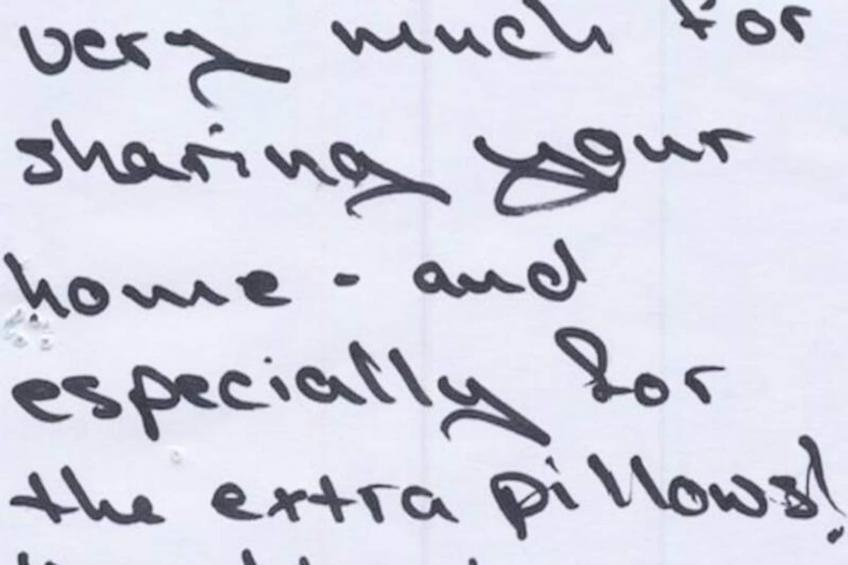 very much for
sharing your
home - and
especially for
the extra pillows!